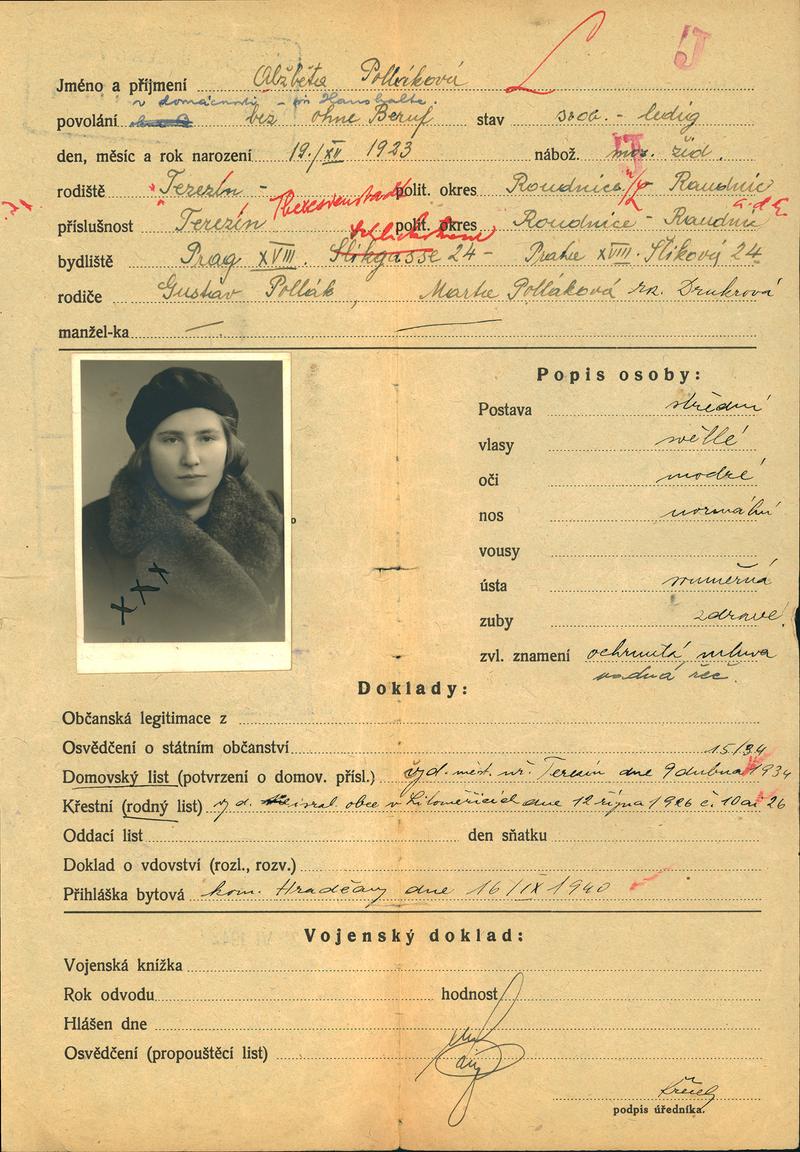 J
Jméno a příjmení Alžběta Polláková
v domácnosti - im Haushalte.
povolání bez ohne Beruf stav svob. - ledig
J
den, měsíc a rok narození 19./XII 1923 nábož. moz. žid.
rodiště Terezín - Theresienstadt polit. okres Roudnice n/L Raudnic
a.d.E.
příslušnost Terezín polit. okres Roudnice - Raudnic
bydliště Prag XVIII. Slikgasse 24 - Praha XVIII. Slikový 24
rodiče Gustav Pollák, Marta Polláková roz. Drukrová
manžel-ka
Popis osoby:
Postava střední
vlasy světlé
oči modré
nos normální
vousy
ústa souměrná
zuby zdravé
zvl. znamení ochrnutá mluva
vadná řeč.
xxx
Doklady:
Občanská legitimace z
Osvědčení o státním občanství 15/34
Domovský list (potvrzení o domov. přísl.) vyd. měst. úř. Terezín dne 9 dubna 1934
Křestní (rodný list) vyd. israel. obce v Litoměřicích dne 12 října 1926 č. 26
Oddací list den sňatku
Doklad o vdovství (rozl., rozv.)
Přihláška bytová kom. Hradčany dne 16/IX 1940
Vojenský doklad:
Vojenská knížka
Rok odvodu hodnost
Hlášen dne
Osvědčení (propouštěcí list)
podpis úředníka.